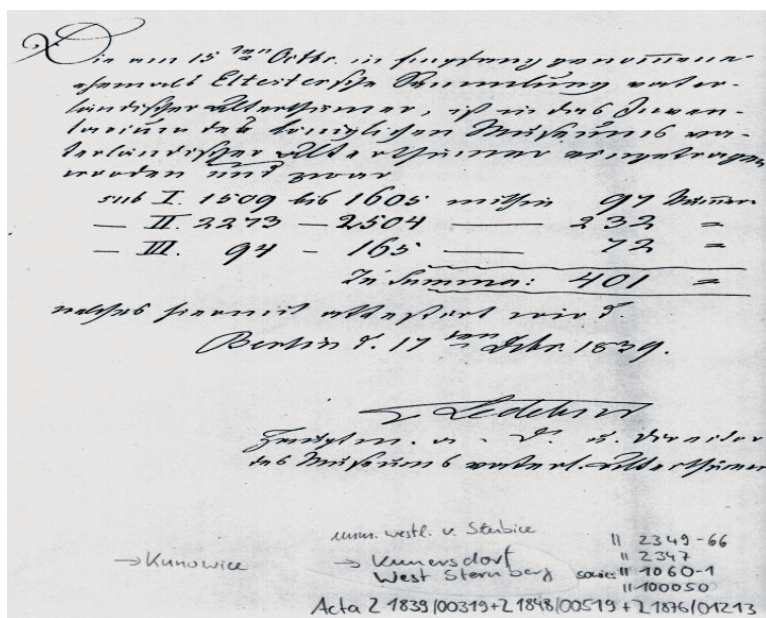 Die am 15ten Octbr. in Empfang genommene
ehemals Eltestersche Sammlung vater-
ländischer Alterthümer, ist in das Inven-
tarium des königlichen Museums va-
terländischer Alterthümer eingetragen
worden und zwar
sub I. 1509 bis 1605 mithin 97 Numer.
— II. 2273 — 2504 — 232 =
— III. 94 — 165 — 72 =
In Summa: 401 =
welches hiermit attestirt wird.
Berlin d. 17ten 1839.
Ledebur
Hauptm. a. D. u. Director
des Museums vaterl. Alterthümer
westl. v. Słubice
II 2349-66
→ Kunowice → Kunersdorf II 2347
West Sternberg sowie II 1060-1
II 100050
Acta Z 1839/00319 + Z 1848/00519 + Z 1876/01213